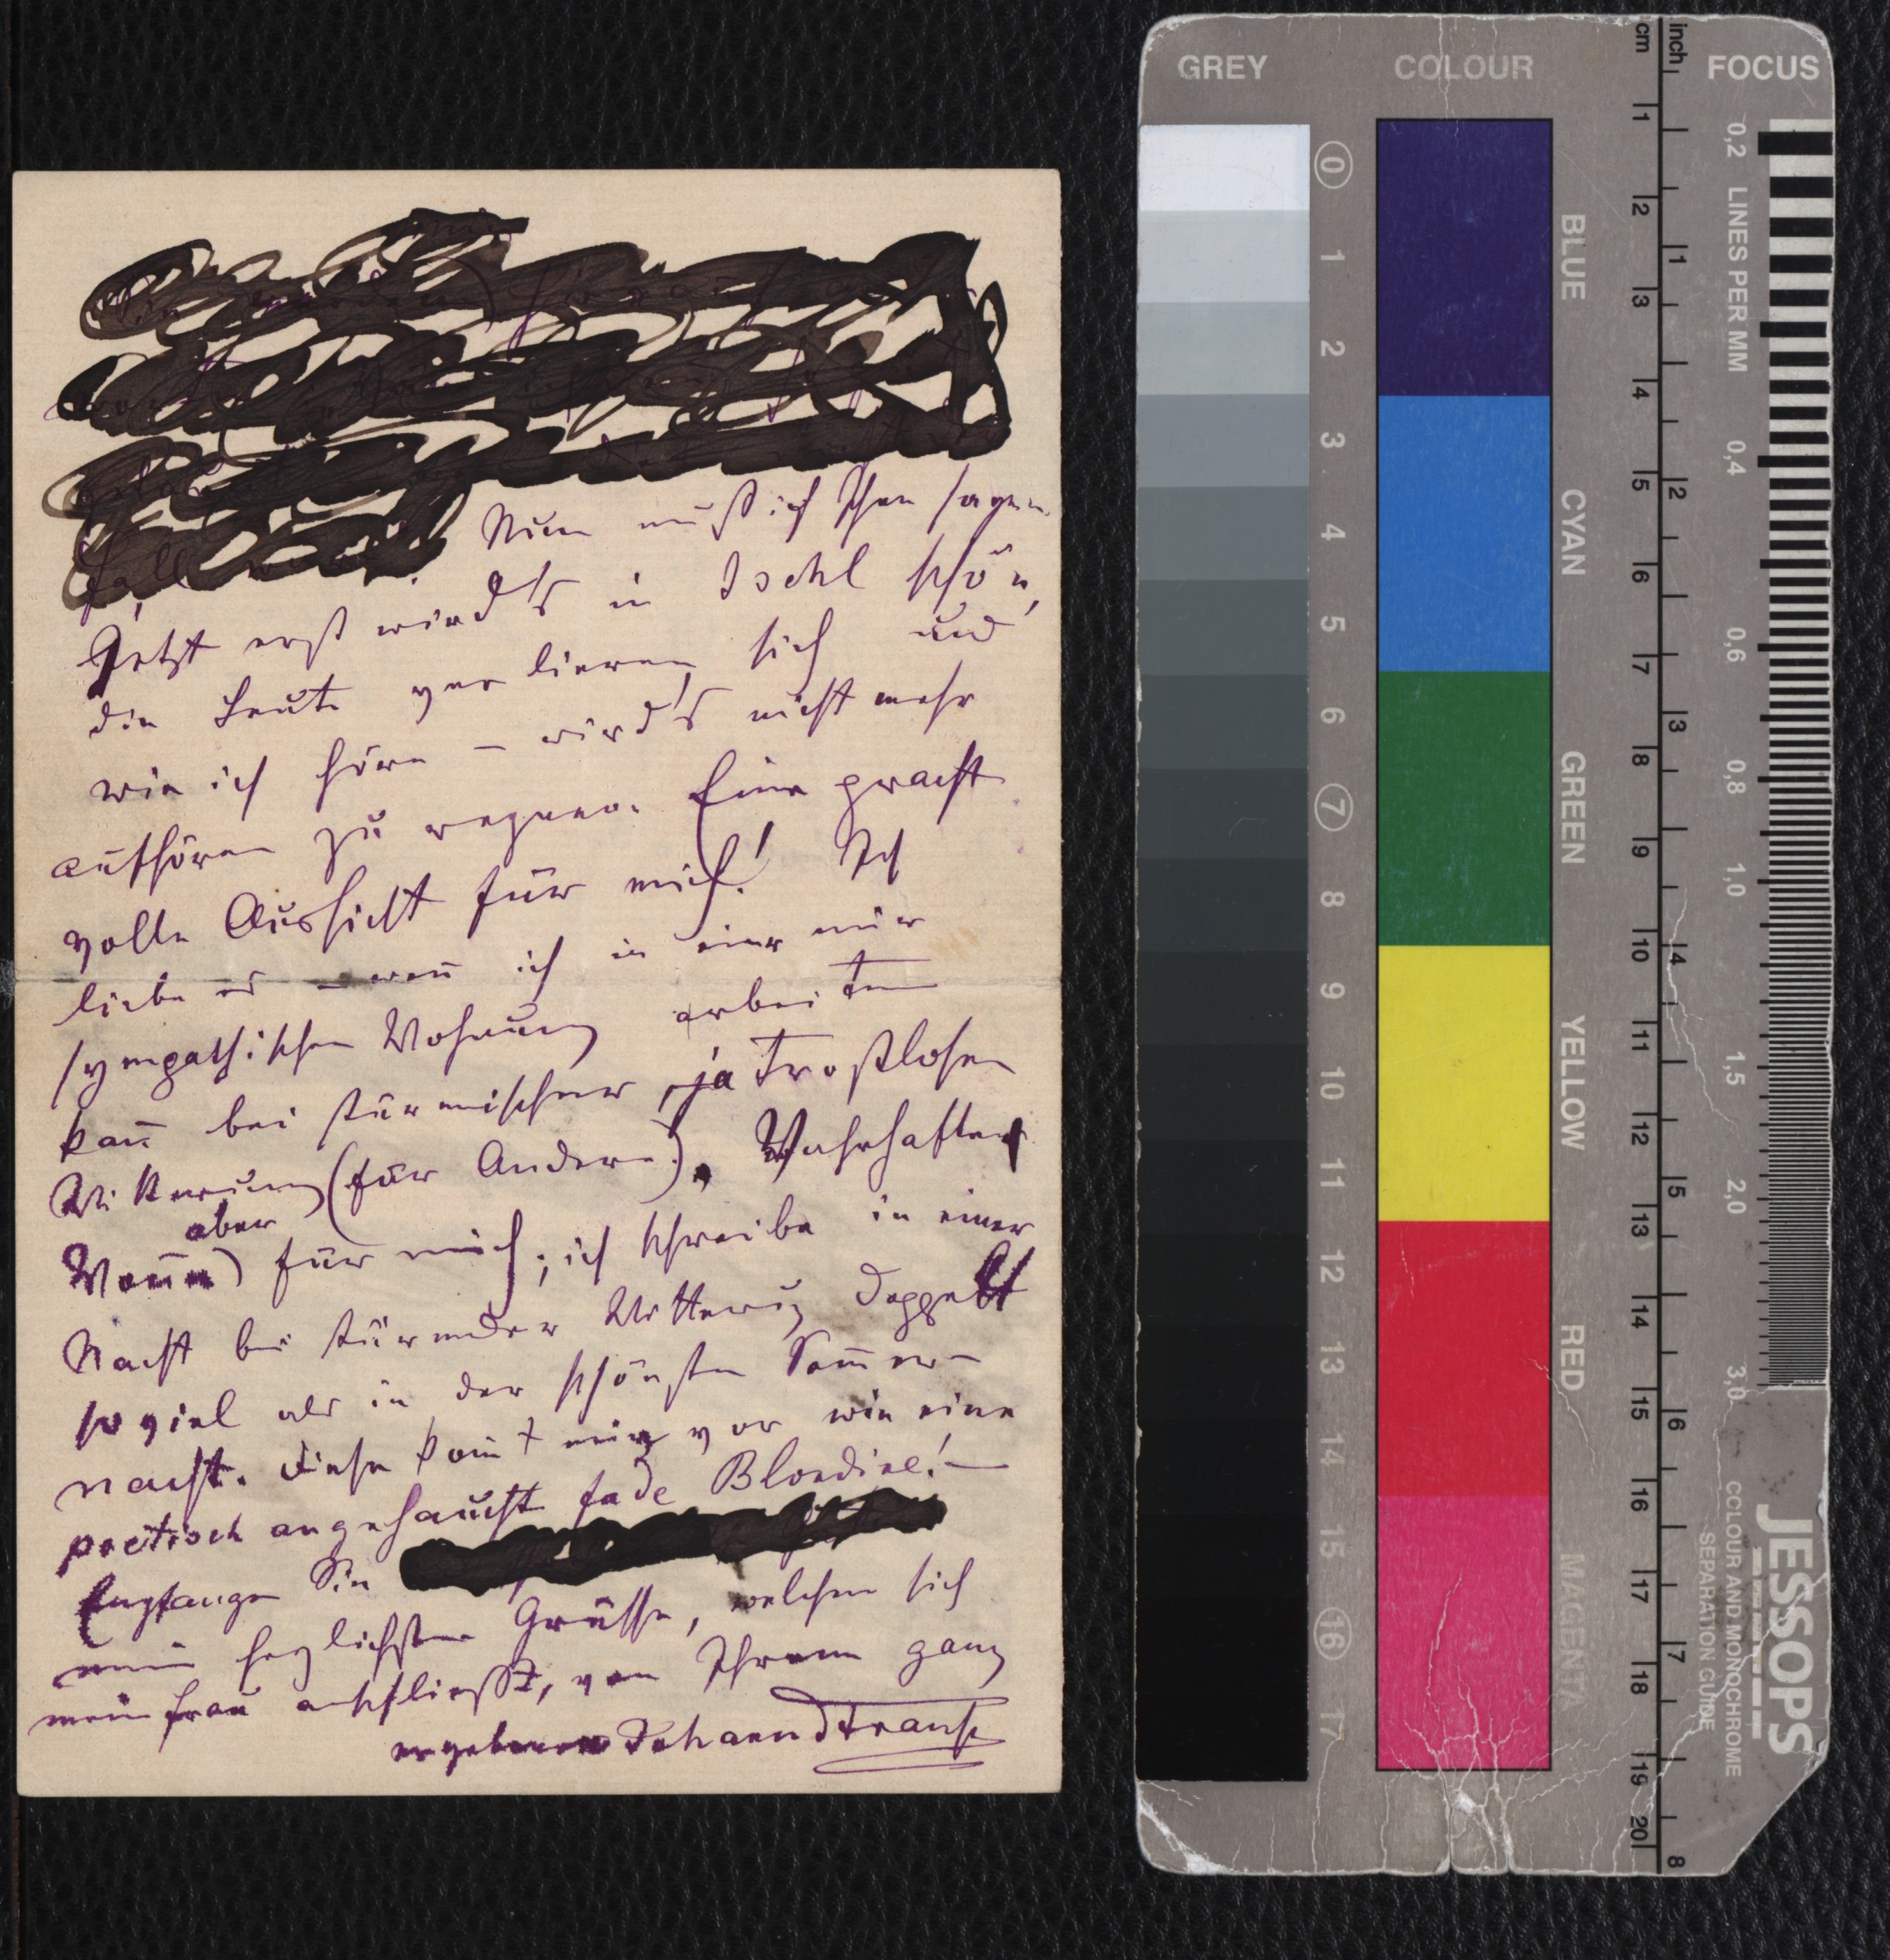 Nun muß ich Ihnen sagen
Jetzt erst wird's in Ischl schön,
die Leute verlieren sich und
wie ich höre – wird's nicht mehr
aufhören zu regnen. Eine pracht
volle Aussicht für mich! Ich
liebe es – wen̄ ich in einer mir
sympathischen Wohnung arbeiten
kan̄ bei stürmischer, ja trostlosen
Witterung (für Andere). Wahrhafter
aber
Won̄e) für mich; ich schreibe in einer
Nacht bei stürmender Witterung doppelt
so viel als in der schönsten Som̄er-
nacht. Diese kom̄t mir vor wie eine
poetisch angehaucht fade Blondine! –
Empfangen Sie
mein herzlichsten Grüsse, welchen sich
mein Frau anschließt, von Ihrem ganz
ergebenen Johann Strauss
GREY COLOUR cm inch FOCUS
0 1 2 3 4 5 6 7 8 9 10 11 12 13 14 15 16 17
BLUE
CYAN
GREEN
YELLOW
RED
MAGENTA
1 2 3 4 5 6 7 8 9 10 11 12 13 14 15 16 17 18 19 20
1 2 3 4 5 6 7 8
0,2 LINES PER MM 0,4 0,6 0,8 1,0 1,5 2,0 3,0
JESSOPS
COLOUR AND MONOCHROME
SEPARATION GUIDE